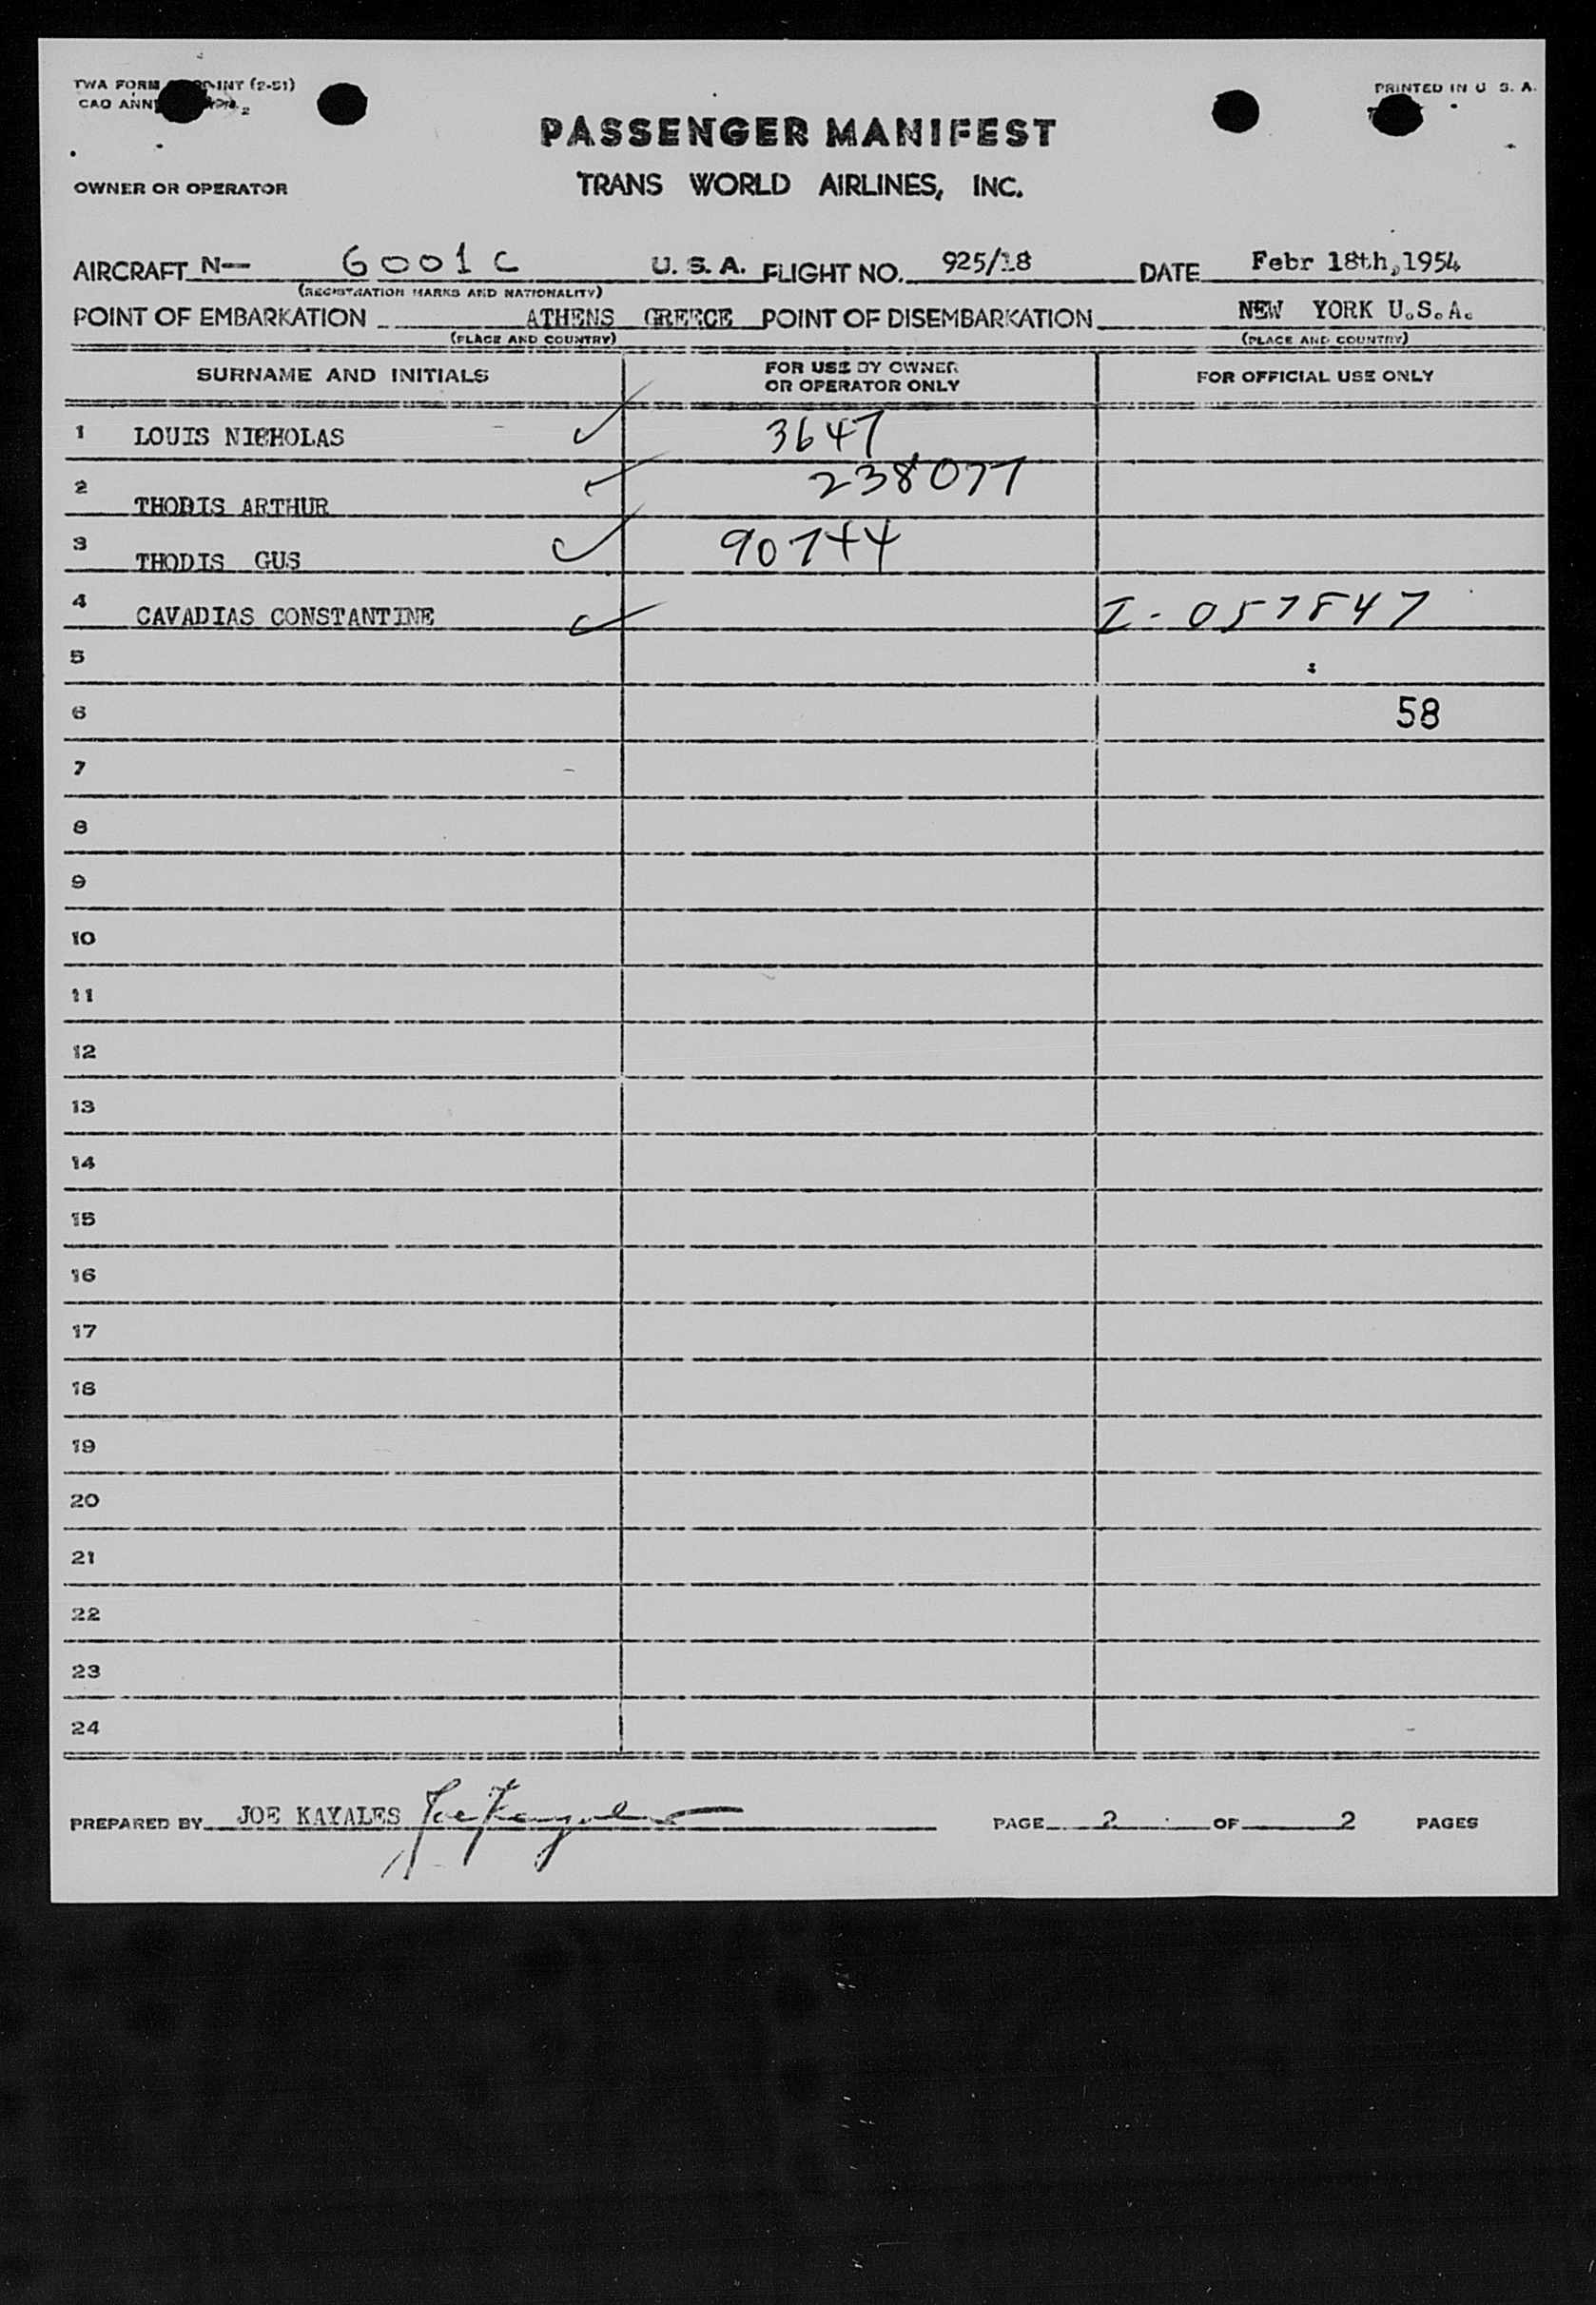 TWA FORM INT (2-51)
PRINTED IN U. S. A.
CAO ANN
PASSENGER MANIFEST
OWNER OR OPERATOR TRANS WORLD AIRLINES, INC.
AIRCRAFT N- 6001 C U. S. A. FLIGHT NO. 925/18 DATE Febr 18th,1954
(REGISTRATION MARKS AND NATIONALITY)
POINT OF EMBARKATION ATHENS GREECE POINT OF DISEMBARKATION NEW YORK U.S.A.
(PLACE AND COUNTRY) (PLACE AND COUNTRY)
SURNAME AND INITIALS FOR USE BY OWNER OR OPERATOR ONLY FOR OFFICIAL USE ONLY
1 LOUIS NICHOLAS 3647
2 THODIS ARTHUR 238077
3 THODIS GUS 90744
4 CAVADIAS CONSTANTINE I-057847
5
6 58
7
8
9
10
11
12
13
14
15
16
17
18
19
20
21
22
23
24
PREPARED BY JOE KAYALES Joe Kayales PAGE 2 OF 2 PAGES